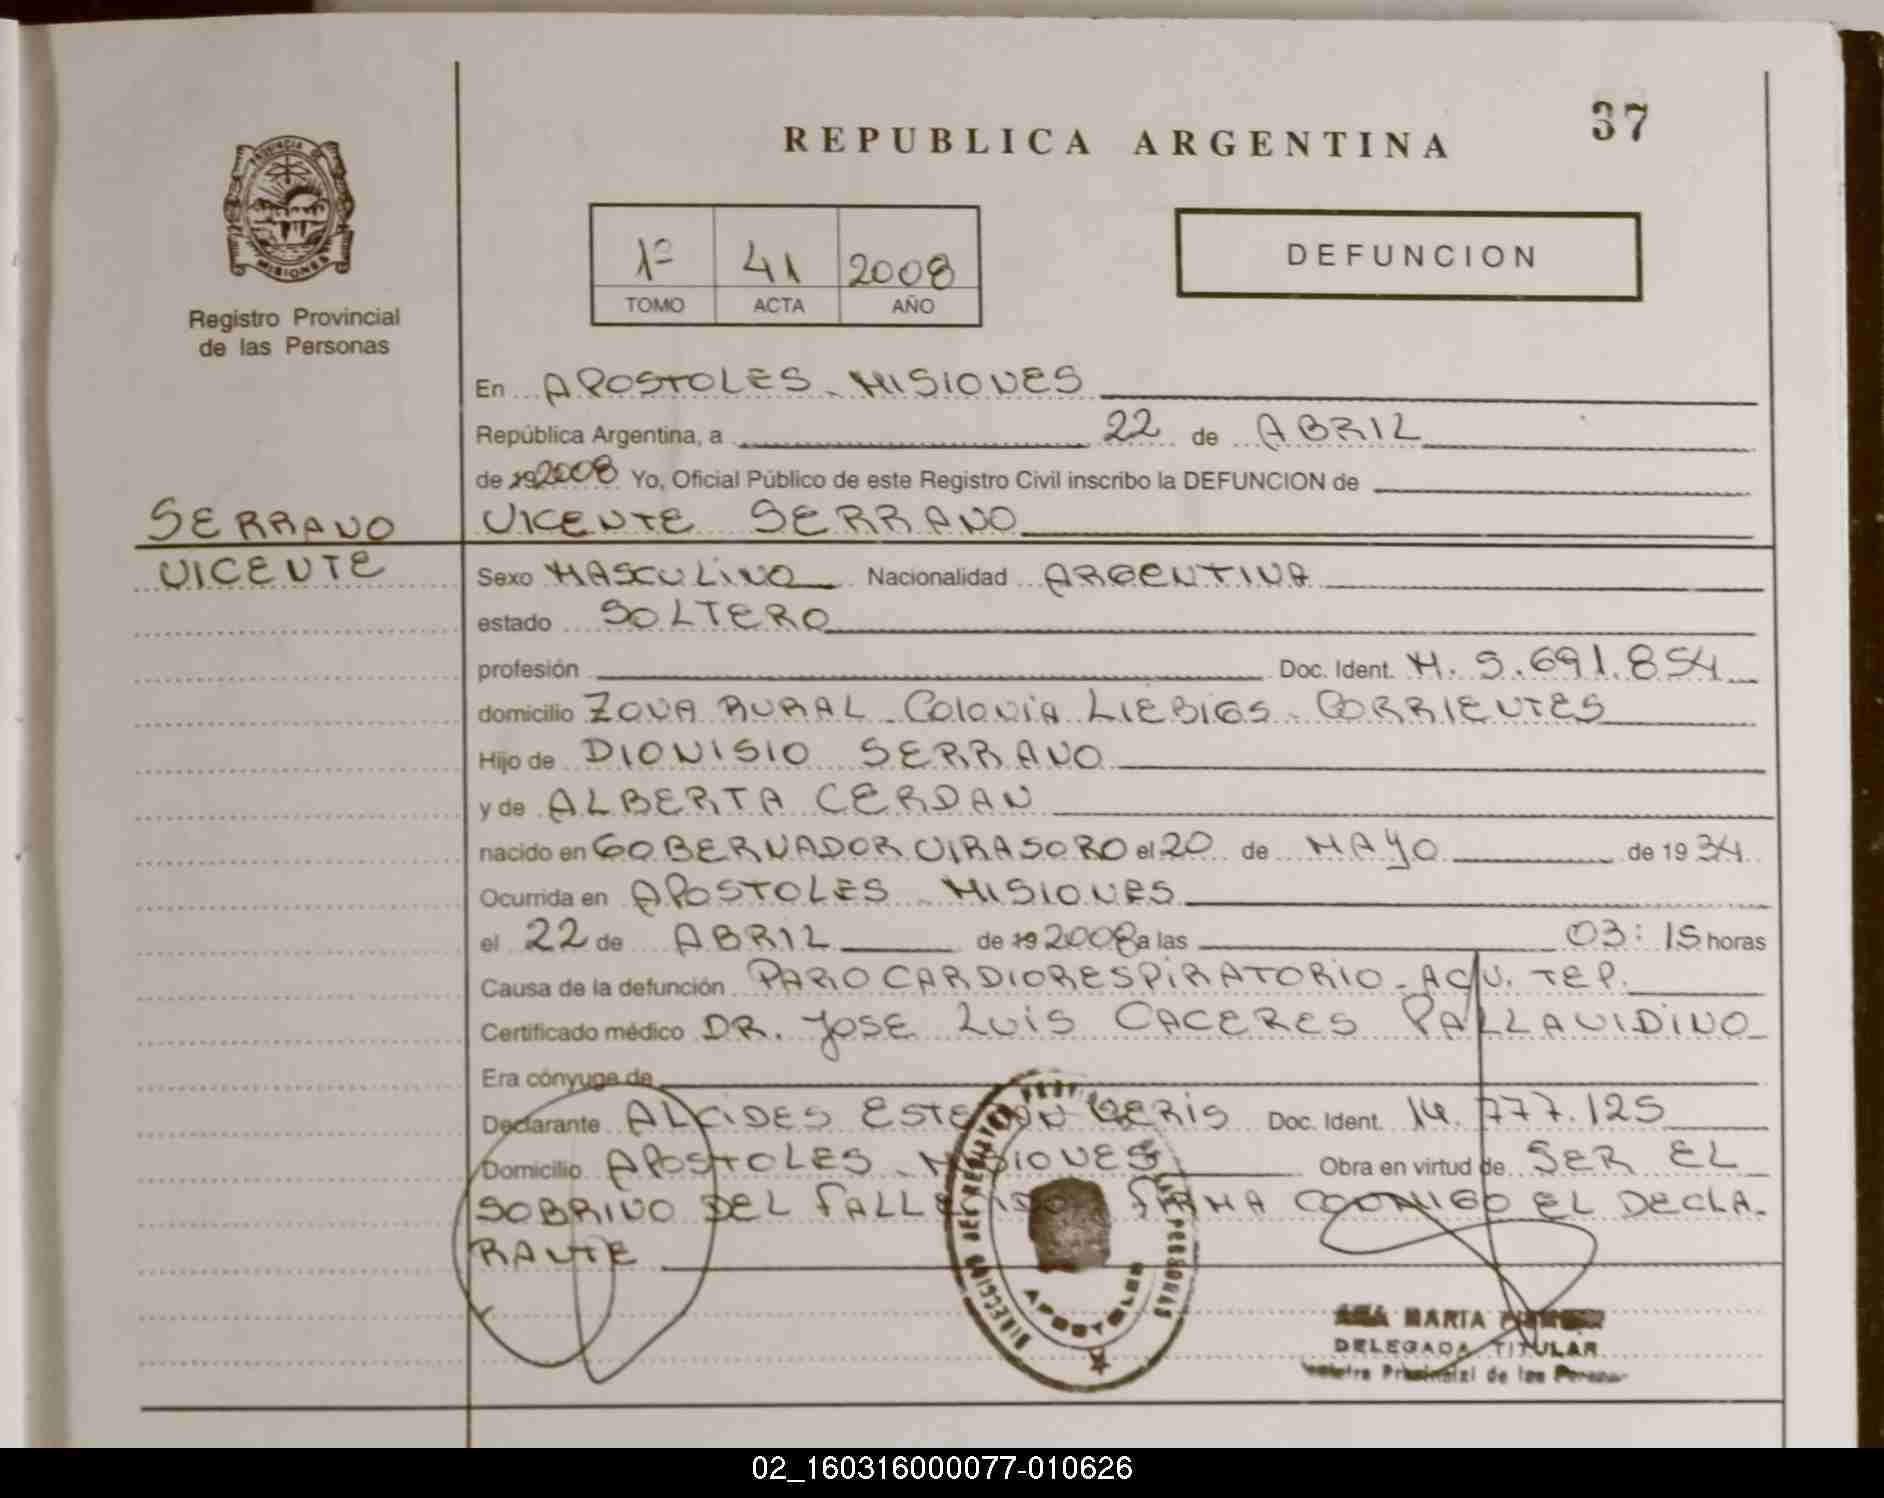 37
REPUBLICA ARGENTINA
PROVINCIA DE
MISIONES
Registro Provincial
de las Personas
1º 41 2008
TOMO ACTA AÑO
DEFUNCION
En APOSTOLES - MISIONES
República Argentina, a 22 de ABRIL
de 192008 Yo, Oficial Público de este Registro Civil inscribo la DEFUNCION de
SERRANO
VICENTE
VICENTE SERRANO
Sexo MASCULINO Nacionalidad ARGENTINA
estado SOLTERO
profesión Doc. Ident. M. 5.691.854
domicilio ZONA RURAL - COLONIA LIEBIGS - CORRIENTES
Hijo de DIONISIO SERRANO
y de ALBERTA CERDAN
nacido en GOBERNADOR VIRASORO el 20 de MAYO de 1934
Ocurrida en APOSTOLES - MISIONES
el 22 de ABRIL de 19 2008 a las 03:15 horas
Causa de la defunción PARO CARDIORESPIRATORIO - ACV. TEP.
Certificado médico DR. JOSE LUIS CACERES PALLAVIDINO
Era cónyuge de
Declarante ALCIDES ESTEBAN Doc. Ident. 14.777.125
Domicilio APOSTOLES - MISIONES Obra en virtud de SER EL
SOBRINO DEL FALLECIDO FIRMA CONMIGO EL DECLA-
RANTE
DIRECCION DEL REGISTRO PERSONAS
APOSTOLES
MARIA
DELEGADA TITULAR
Provincial de las
02_160316000077-010626